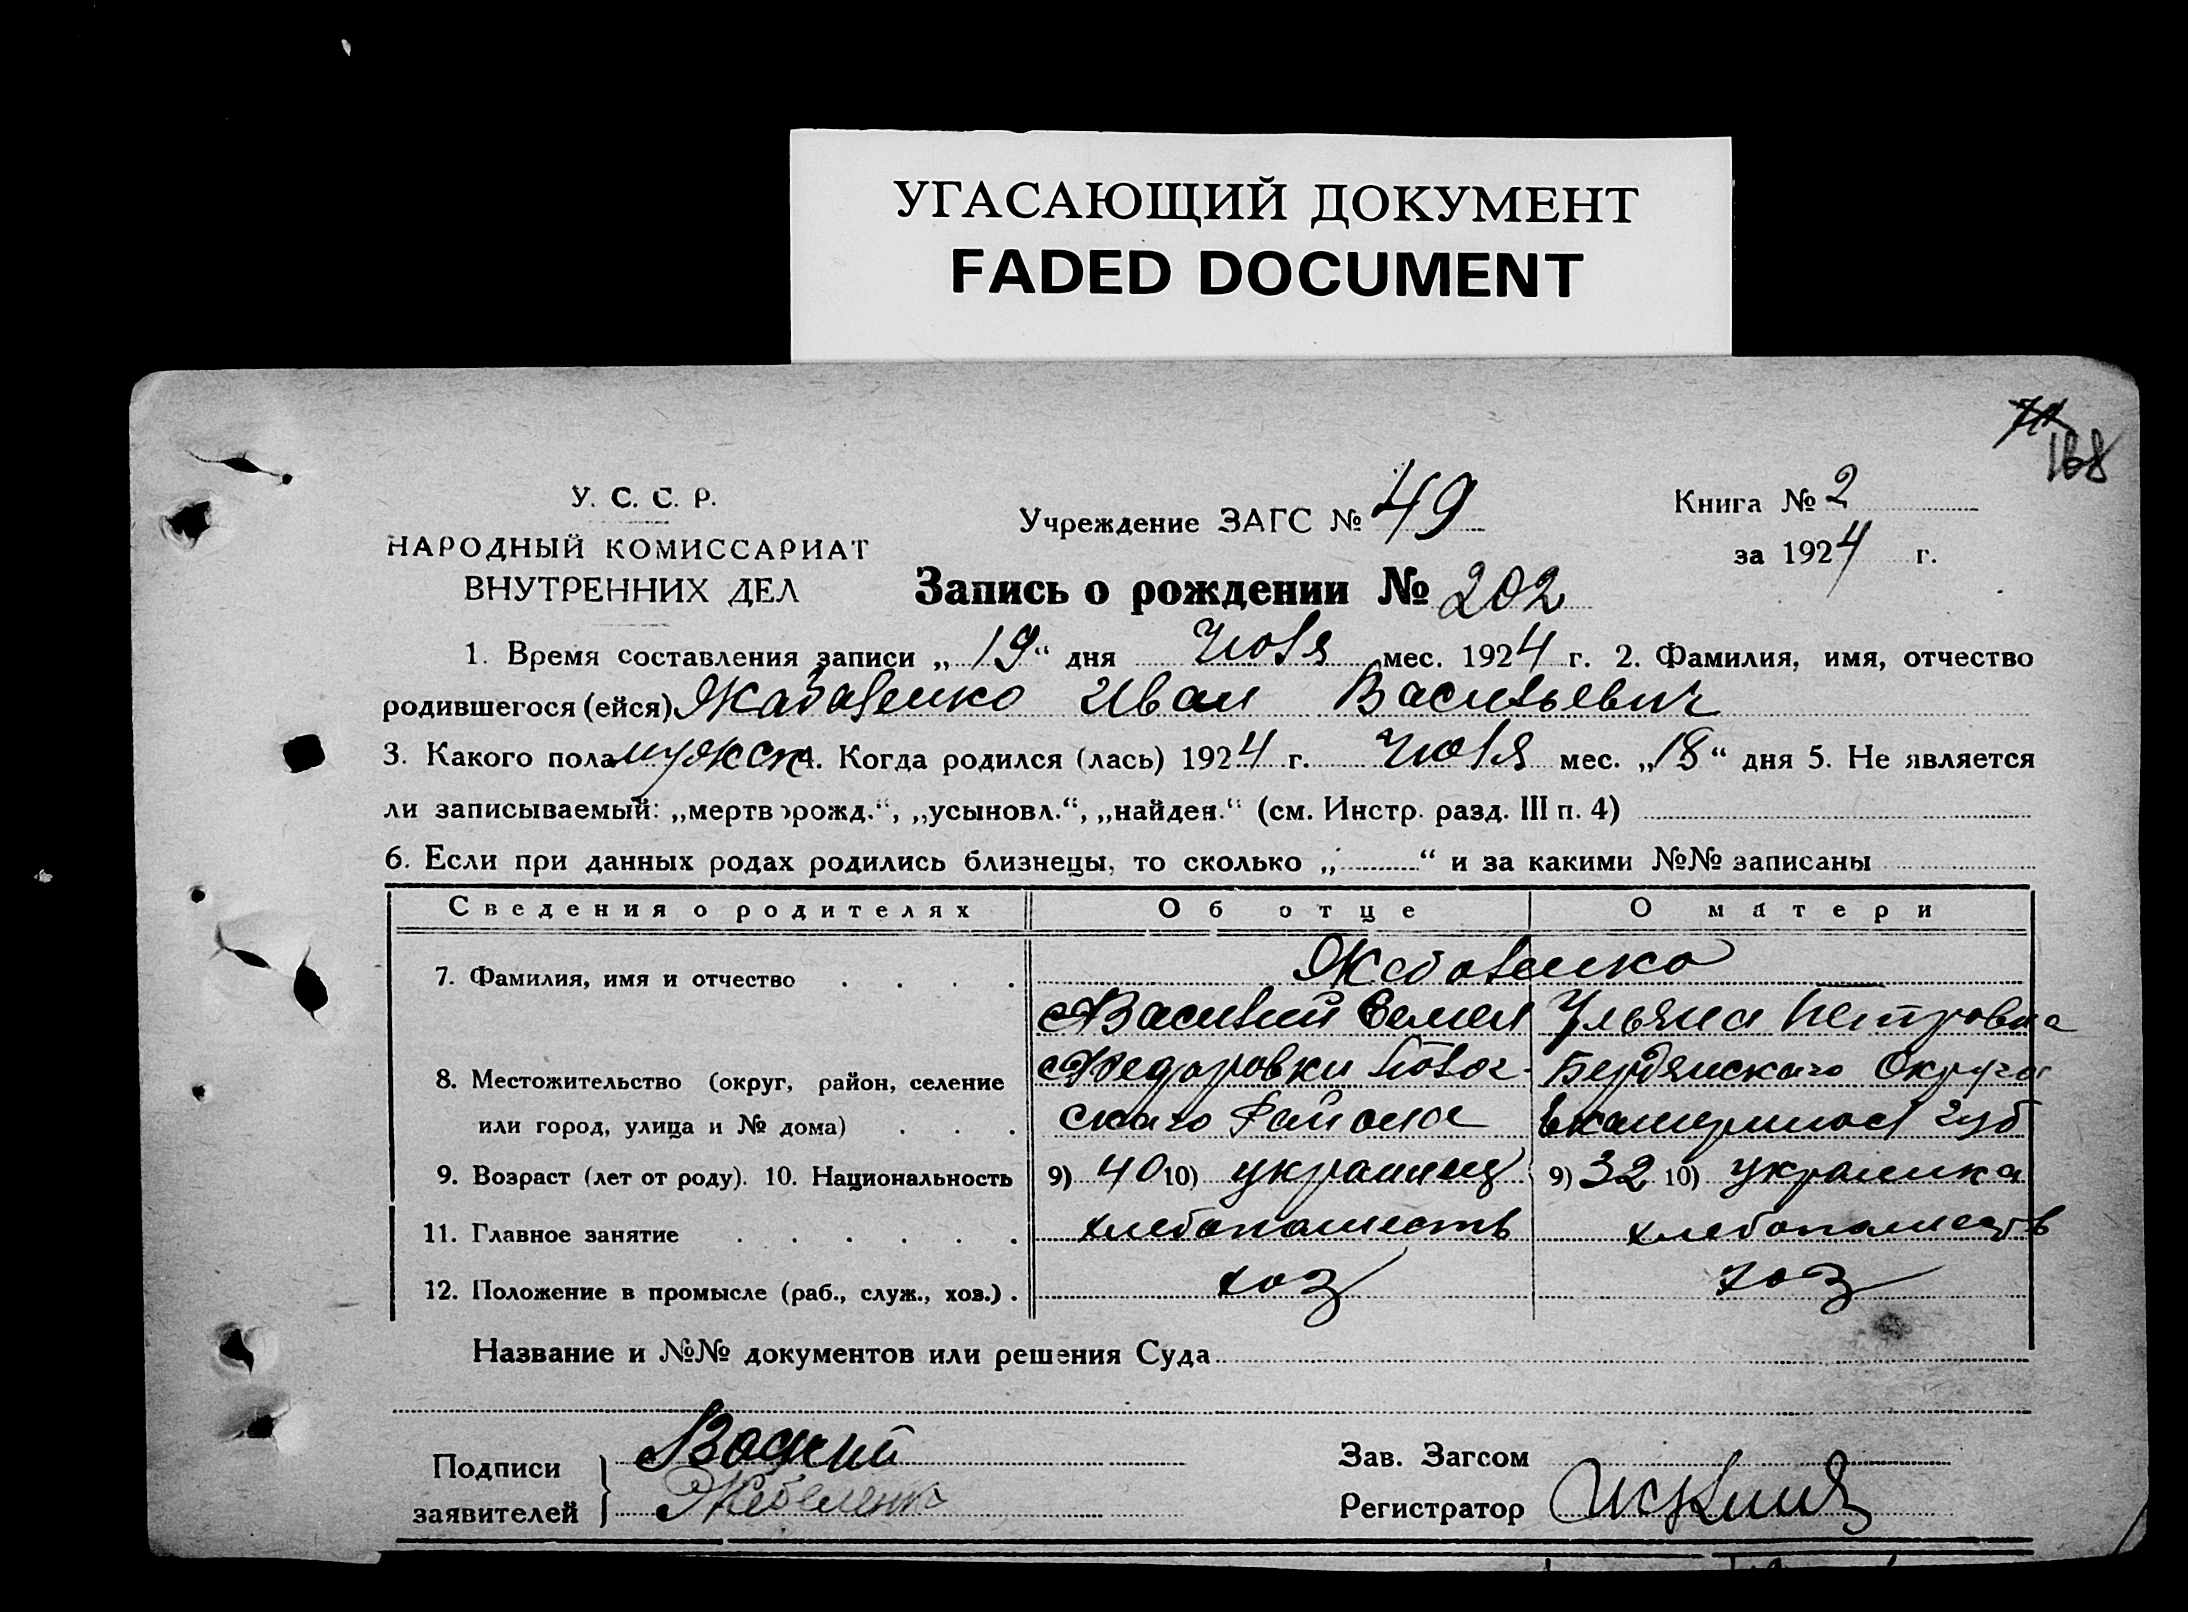 УГАСАЮЩИЙ ДОКУМЕНТ
FADED DOCUMENT
168
У. С. С. Р.
НАРОДНЫЙ КОМИССАРИАТ
ВНУТРЕННИХ ДЕЛ
Учреждение ЗАГС № 49
Книга № 2
за 1924 г.
Запись о рождении № 202
1. Время составления записи „19“ дня Июля мес. 1924 г. 2. Фамилия, имя, отчество
родившегося (ейся) Жабавенко Иван Васильевич
3. Какого пола мужск 4. Когда родился (лась) 1924 г. Июля мес. „18“ дня 5. Не является
ли записываемый: „мертворожд.“, „усыновл.“, „найден.“ (см. Инстр. разд. III п. 4)
6. Если при данных родах родились близнецы, то сколько „ “ и за какими №№ записаны
Сведения о родителях Об отце О матери
7. Фамилия, имя и отчество
Василий Семен Ульяна Петровна
8. Местожительство (округ, район, селение Федоровки Бердянскаго Округа
или город, улица и № дома) скаго Района Екатеринос губ
9. Возраст (лет от роду). 10. Национальность 9) 40 10) украинец 9) 32 10) украинка
11. Главное занятие хлебопашеств хлебопашеств
12. Положение в промысле (раб., служ., хоз.) хоз хоз
Название и №№ документов или решения Суда
Подписи
заявителей
Зав. Загсом
Регистратор